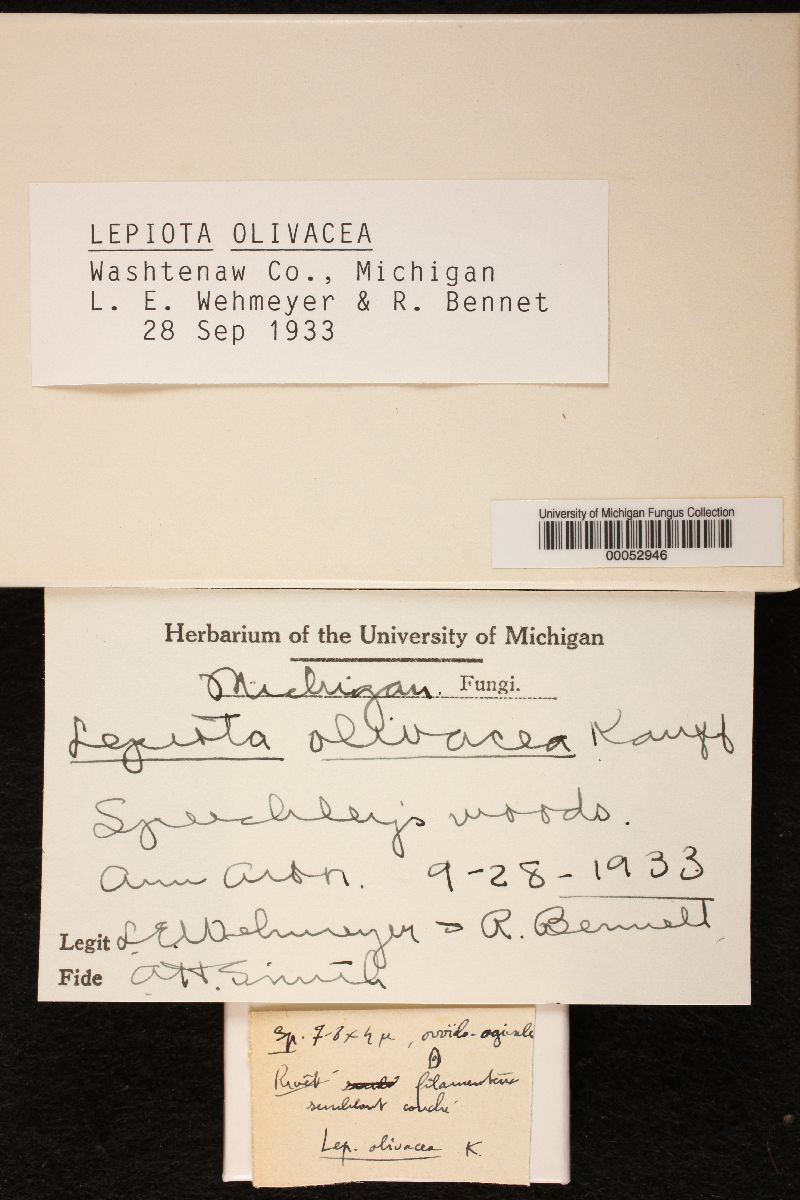 LEPIOTA OLIVACEA
Washtenaw Co., Michigan
L. E. Wehmeyer & R. Bennet
28 Sep 1933
University of Michigan Fungus Collection
00052946
Herbarium of the University of Michigan
Michigan. Fungi.
Lepiota olivacea Kauff
Speechley's woods.
Ann Arbor. 9-28-1933
Legit L.E. Wehmeyer & R. Bennett
Fide A.H. Smith
Sp. 7-8 x 4 µ, ovoïdo-ogivale
Revêt filamenteux
semblant couché
Lep. olivacea K.